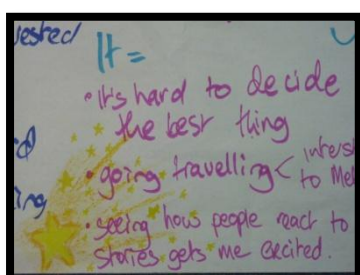 It =
• It's hard to decide
the best thing
• going travelling <
to
• seeing how people react to
stories gets me excited.